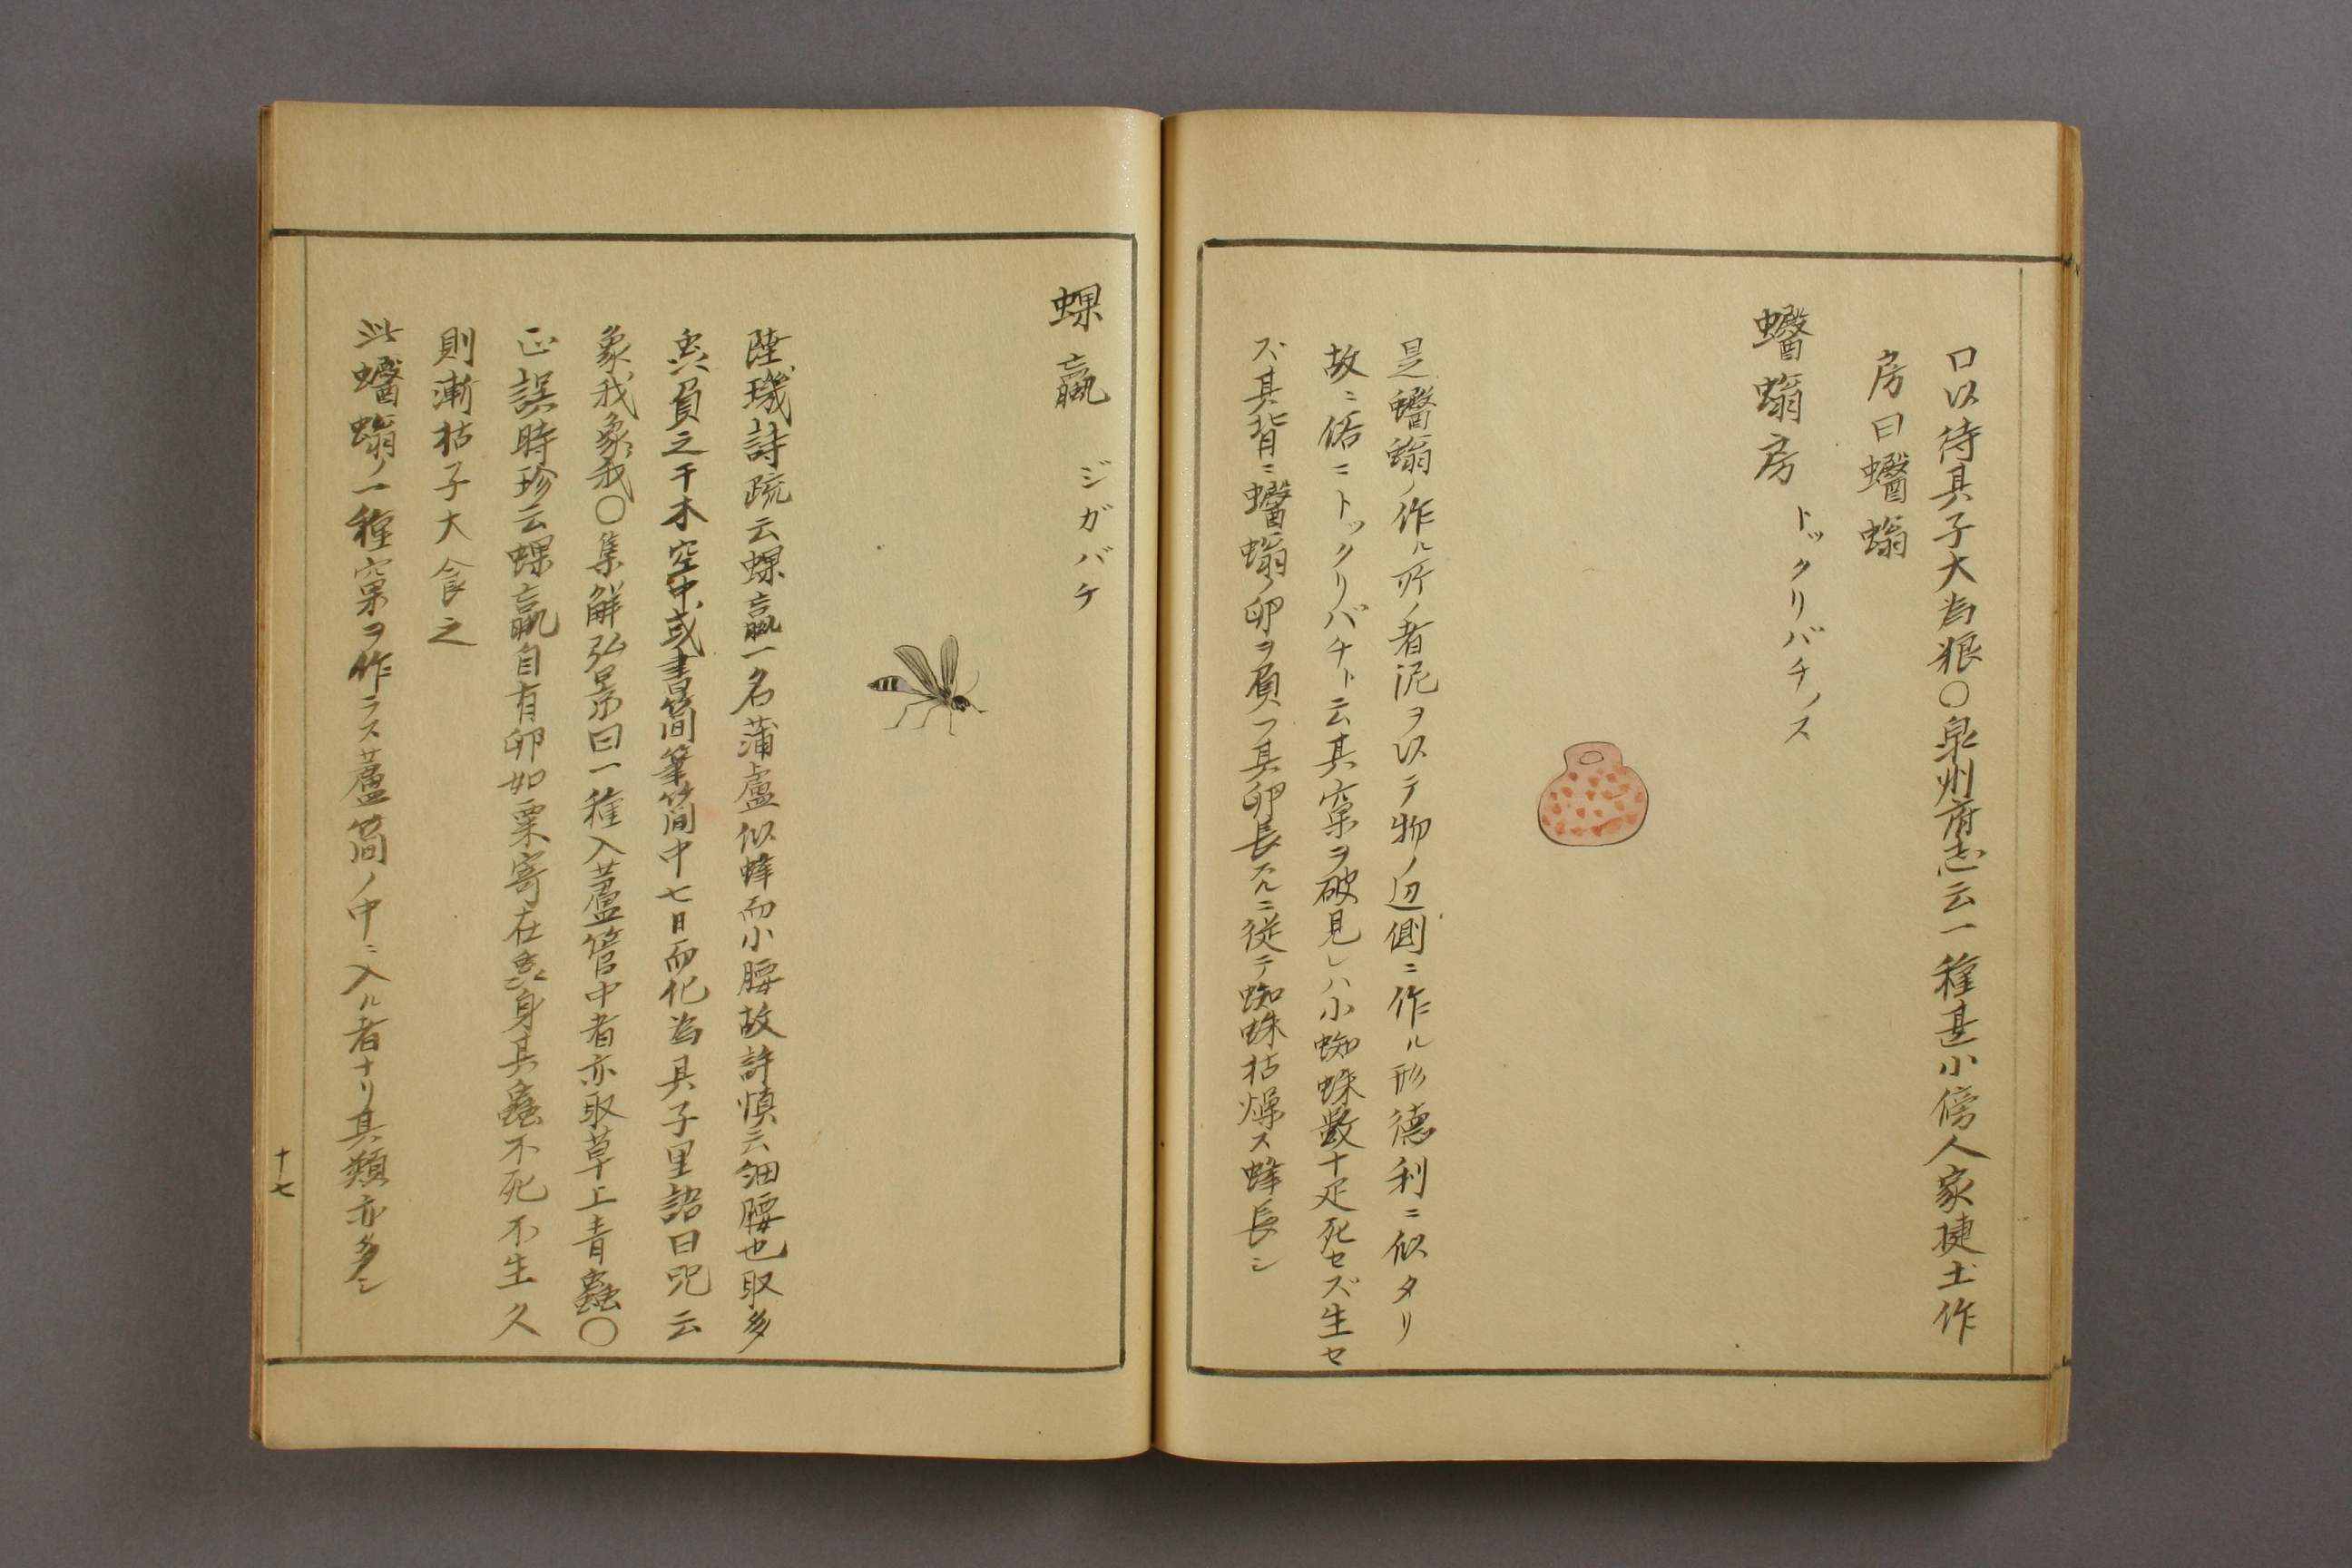 口以待其子大為狠〇泉州府志云一種甚小傍人家揵土作
房曰蠮螉
蠮螉房 トックリバチノス
是蠮螉ノ作ル所ノ者泥ヲ以テ物ノ辺側ニ作ル形德利ニ似タリ
故ニ俗ニトックリバチト云其窠ヲ破見レハ小蜘蛛數十疋死セズ生セ
ズ其背ニ蠮螉ノ卵ヲ負フ其卵長スルニ従テ蜘蛛枯燥ス蜂長シ
蜾蠃 ジガバチ
陸璣詩疏云蜾蠃一名蒲盧似蜂而小腰故許慎云細腰也取多
虫負之于木空中或書簡筆筒中七日而化為其子里語曰呪云
象我象我〇集解弘景曰一種入蘆管中者亦取草上青蟲〇
正誤時珍云蜾蠃自有卵如粟寄在虫身其蟲不死不生久
則漸枯子大食之
此蠮螉ノ一種窠ヲ作ラス蘆筒ノ中ニ入ル者ナリ其類亦多シ
十七